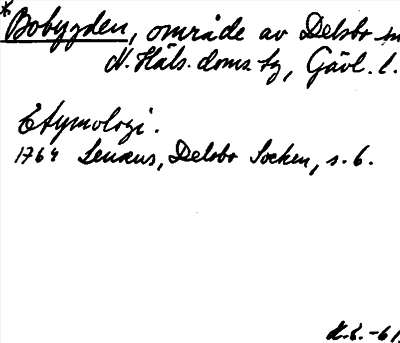 * Bobygden, område av Delsbo sn
N. Häls. doms. tg, Gävl. l.
Etymologi.
1764 Lenæus, Delsbo Socken, s. 6.
-61